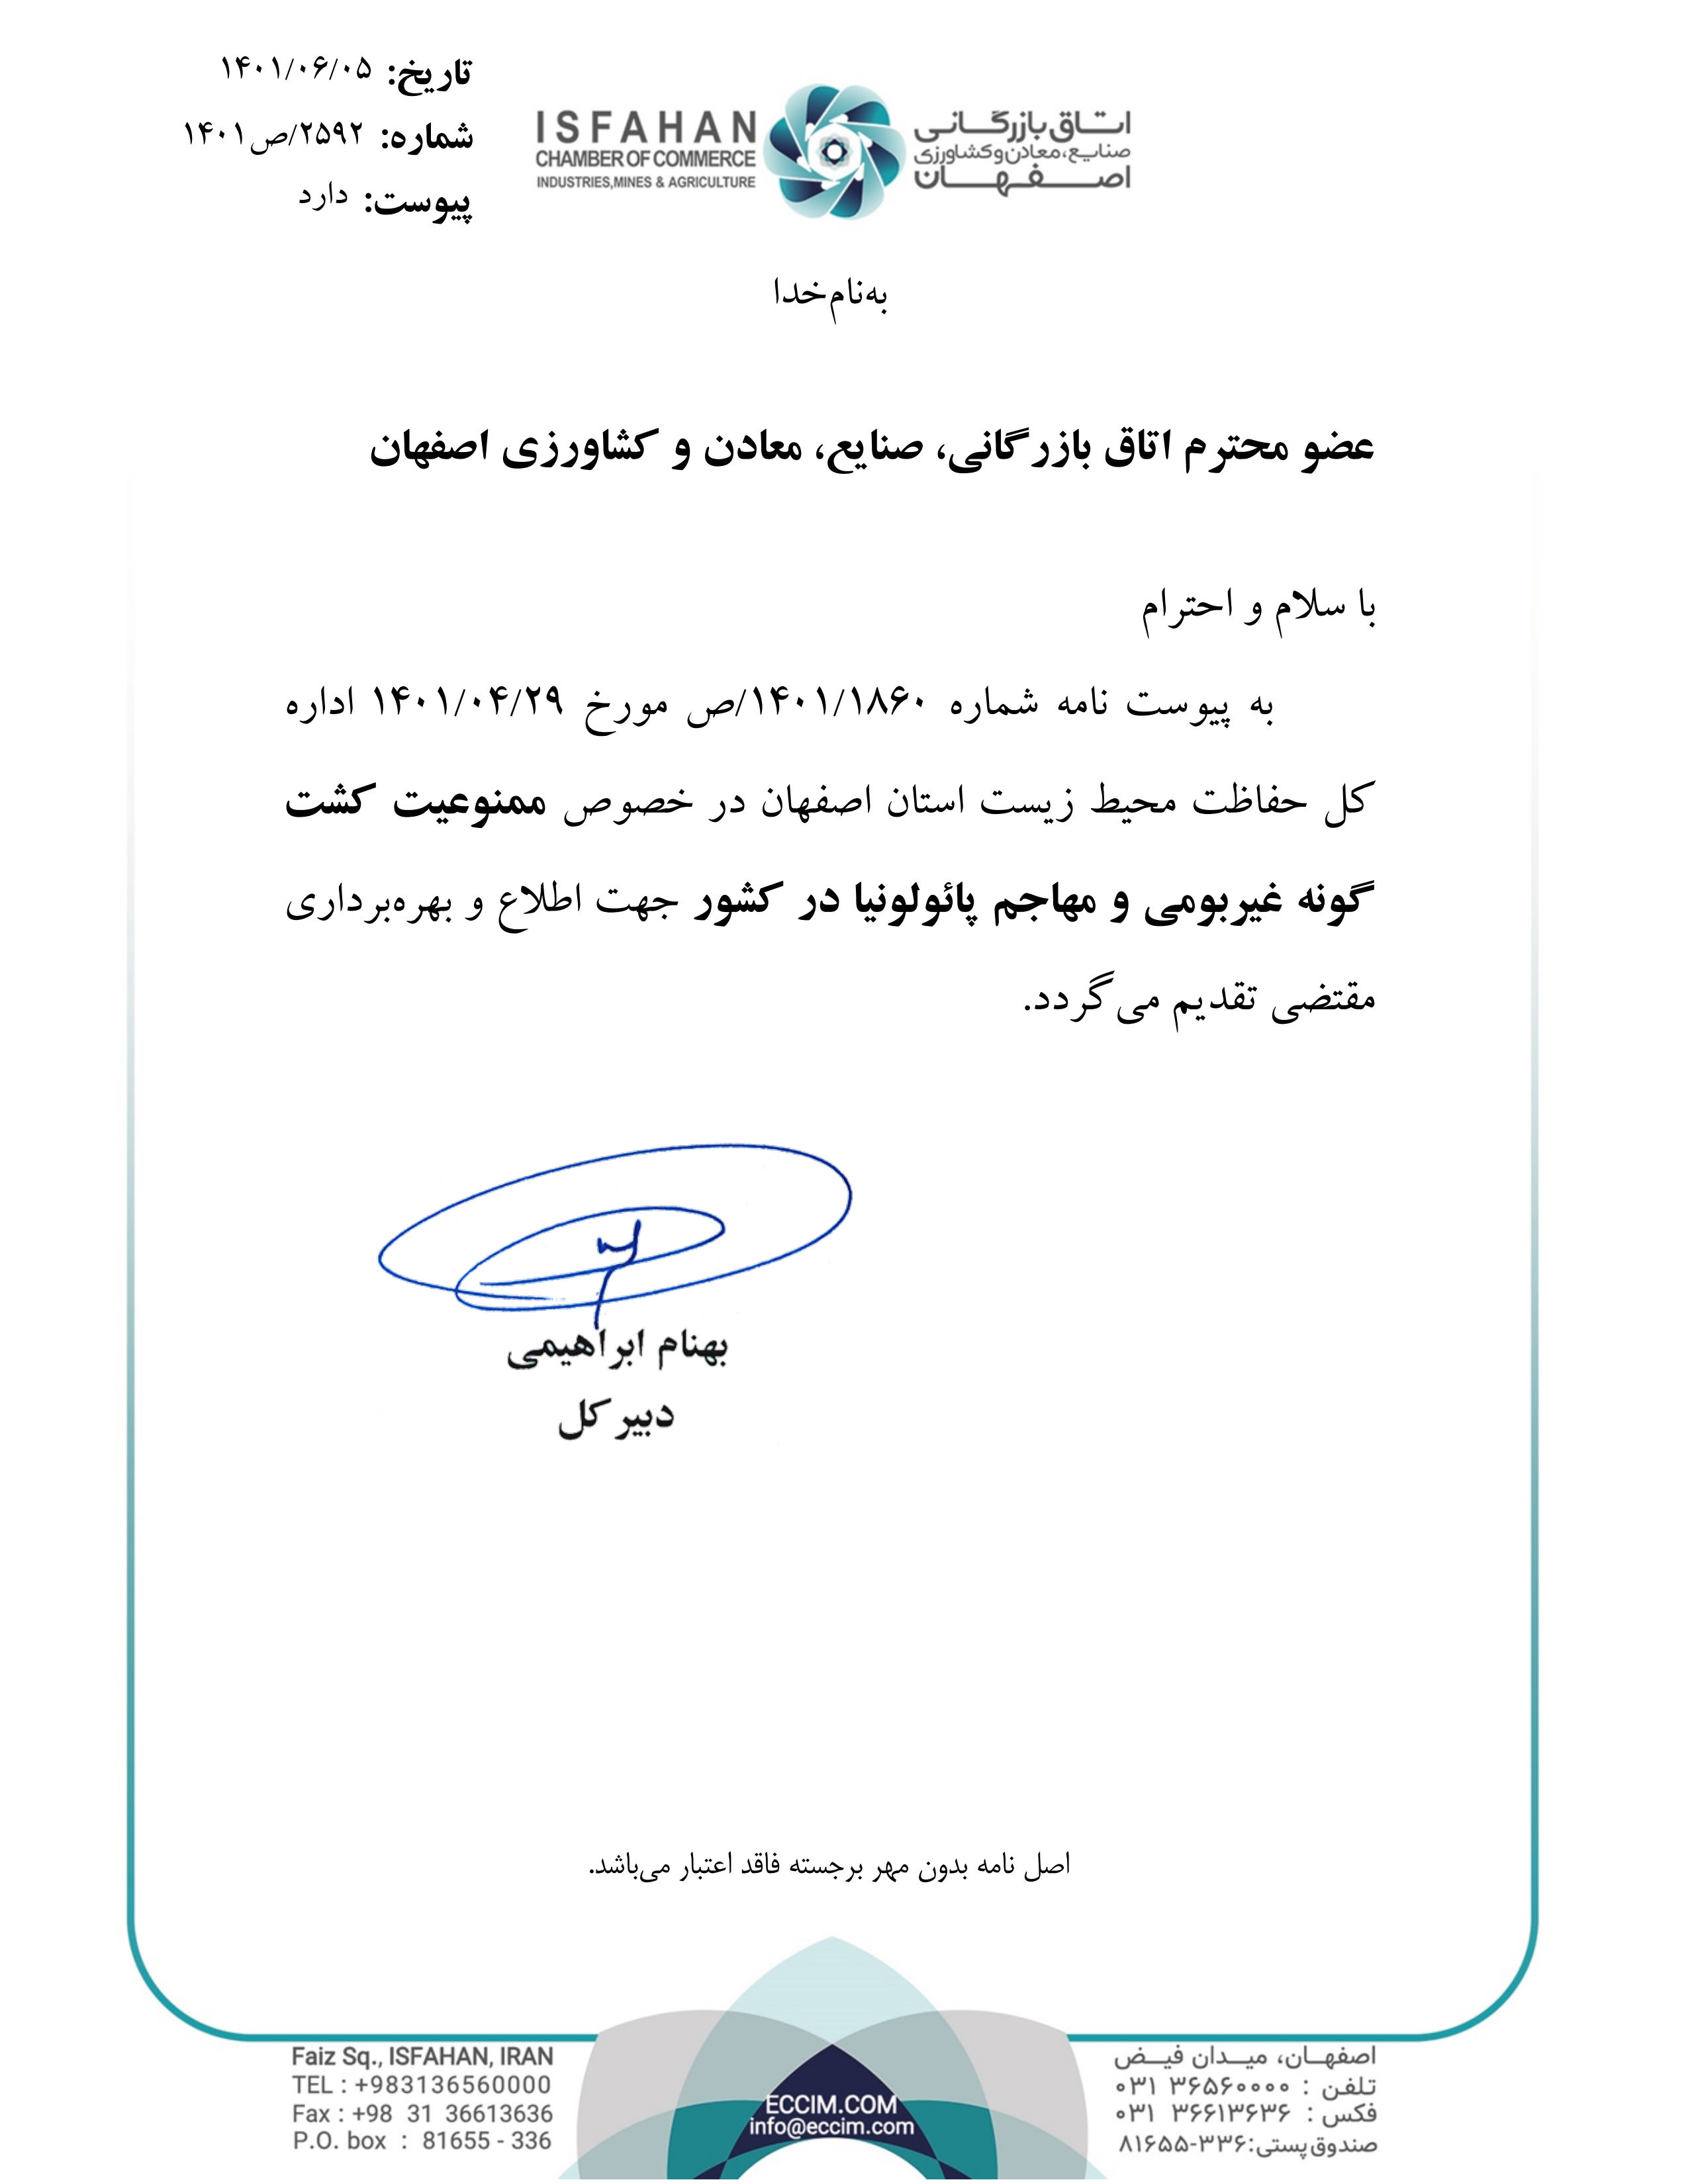 تاریخ: ۱۴۰۱/۰۶/۰۵
شماره: ۲۵۹۲/ص۱۴۰۱
پیوست: دارد
ISFAHAN
CHAMBER OF COMMERCE
INDUSTRIES,MINES & AGRICULTURE
اتاق بازرگانی
صنایع، معادن و کشاورزی
اصفهان
به‌نام‌خدا
عضو محترم اتاق بازرگانی، صنایع، معادن و کشاورزی اصفهان
با سلام و احترام
به پیوست نامه شماره ۱۴۰۱/۱۸۶۰/ص مورخ ۱۴۰۱/۰۴/۲۹ اداره
کل حفاظت محیط زیست استان اصفهان در خصوص ممنوعیت کشت
گونه غیربومی و مهاجم پائولونیا در کشور جهت اطلاع و بهره‌برداری
مقتضی تقدیم می‌گردد.
بهنام ابراهیمی
دبیر کل
اصل نامه بدون مهر برجسته فاقد اعتبار می‌باشد.
Faiz Sq., ISFAHAN, IRAN
TEL : +983136560000
Fax : +98 31 36613636
P.O. box : 81655 - 336
ECCIM.COM
info@eccim.com
اصفهان، میدان فیض
تلفن : ۰۳۱ ۳۶۵۶۰۰۰۰
فکس : ۰۳۱ ۳۶۶۱۳۶۳۶
صندوق پستی: ۸۱۶۵۵-۳۳۶